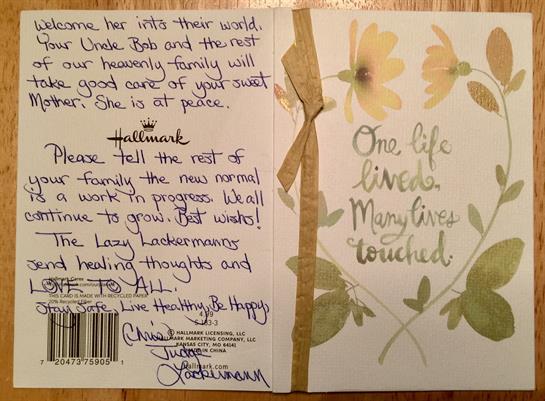 welcome her into their world.
Your Uncle Bob and the rest
of our heavenly family will
take good care of your sweet
Mother. She is at peace.
Hallmark
Please tell the rest of
your family the new normal
is a work in progress. We all
continue to grow. Best wishs!
The Lazy Lackermanns
send healing thoughts and
LOVE TO ALL.
THIS CARD IS MADE WITH RECYCLED PAPER
20% Recycled Fiber
Stay Safe, Live Healthy, Be Happy,
4.99
Chris
Judge
Lackermann
HALLMARK LICENSING, LLC
HALLMARK MARKETING COMPANY, LLC
KANSAS CITY, MO 64141
MADE IN CHINA
Hallmark.com
7 20473 75905 1
One life
lived.
Many lives
touched.